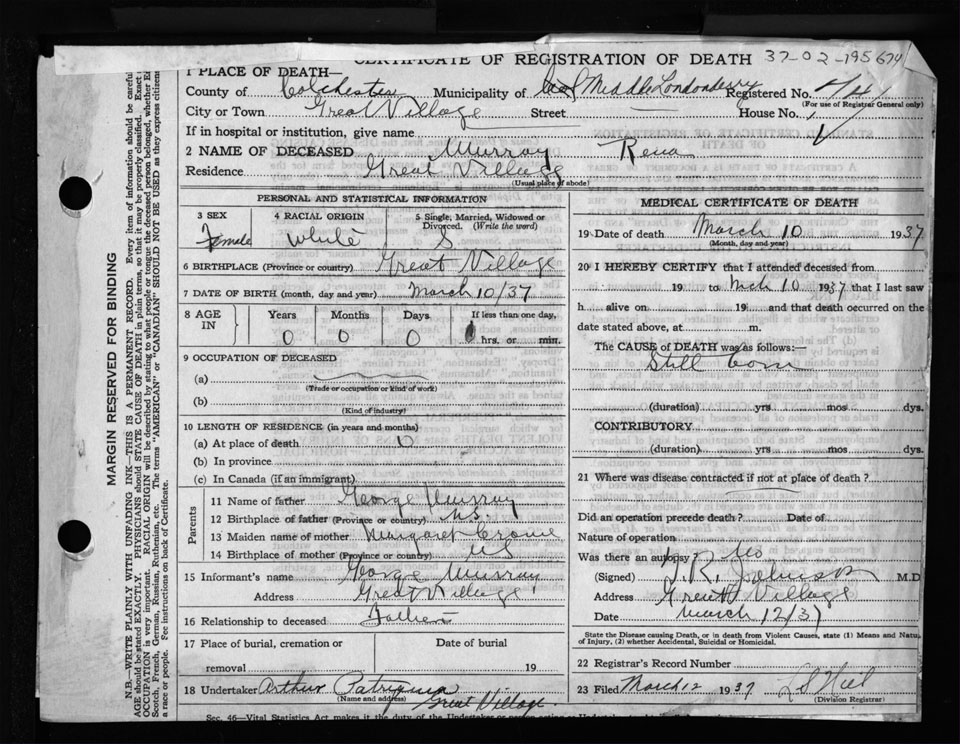 CERTIFICATE OF REGISTRATION OF DEATH 37-02-195674
1 PLACE OF DEATH—
County of Colchester Municipality of Middle Londonderry Registered No.
(For use of Registrar General only)
City or Town Great Village Street House No.
If in hospital or institution, give name
2 NAME OF DECEASED Murray Rena
Residence Great Village
(Usual place of abode)
PERSONAL AND STATISTICAL INFORMATION
3 SEX 4 RACIAL ORIGIN 5 Single, Married, Widowed or
Divorced. (Write the word)
Female White S
6 BIRTHPLACE (Province or country) Great Village
7 DATE OF BIRTH (month, day and year) March 10/37
8 AGE IN Years Months Days If less than one day,
0 0 0 0 hrs. or min.
9 OCCUPATION OF DECEASED
(a)
(Trade or occupation or kind of work)
(b)
(Kind of industry)
10 LENGTH OF RESIDENCE (in years and months)
(a) At place of death 0
(b) In province
(c) In Canada (if an immigrant)
Parents
11 Name of father George Murray
12 Birthplace of father (Province or country) N.S.
13 Maiden name of mother Margaret Crowe
14 Birthplace of mother (Province or country) NS
15 Informant's name George Murray
Address Great Village
16 Relationship to deceased Father
17 Place of burial, cremation or Date of burial
removal 19
18 Undertaker Arthur Patriquin
(Name and address) Great Village
MEDICAL CERTIFICATE OF DEATH
19 Date of death March 10 1937
(Month, day and year)
20 I HEREBY CERTIFY that I attended deceased from
19 to Mch 10 1937 that I last saw
h alive on 19 and that death occurred on the
date stated above, at m.
The CAUSE of DEATH was as follows:—
Still born
(duration) yrs mos dys.
CONTRIBUTORY
(duration) yrs. mos dys.
21 Where was disease contracted if not at place of death?
Did an operation precede death? Date of
Nature of operation
Was there an autopsy? No
(Signed) T.R. Johnson M.D
Address Great Village
Date March 12/37
State the Disease causing Death, or in death from Violent Causes, state (1) Means and Natu
of Injury, (2) whether Accidental, Suicidal or Homicidal.
22 Registrar's Record Number
23 Filed March 12 1937
(Division Registrar)
Sec. 46—Vital Statistics Act makes it the duty of the Undertaker or
MARGIN RESERVED FOR BINDING
N.B.—WRITE PLAINLY WITH UNFADING INK—THIS IS A PERMANENT RECORD. Every item of information should be careful
AGE should be stated EXACTLY. PHYSICIANS should STATE CAUSE OF DEATH in plain terms, so that it may be properly classified. Exact
OCCUPATION is very important. RACIAL ORIGIN will be described by stating to what people or tongue the deceased person belonged, whether
Scotch, French, German, Russian, Ruthenian, etc. The terms "AMERICAN" or "CANADIAN" SHOULD NOT BE USED as they express citizens
a race or people. See instructions on back of Certificate.